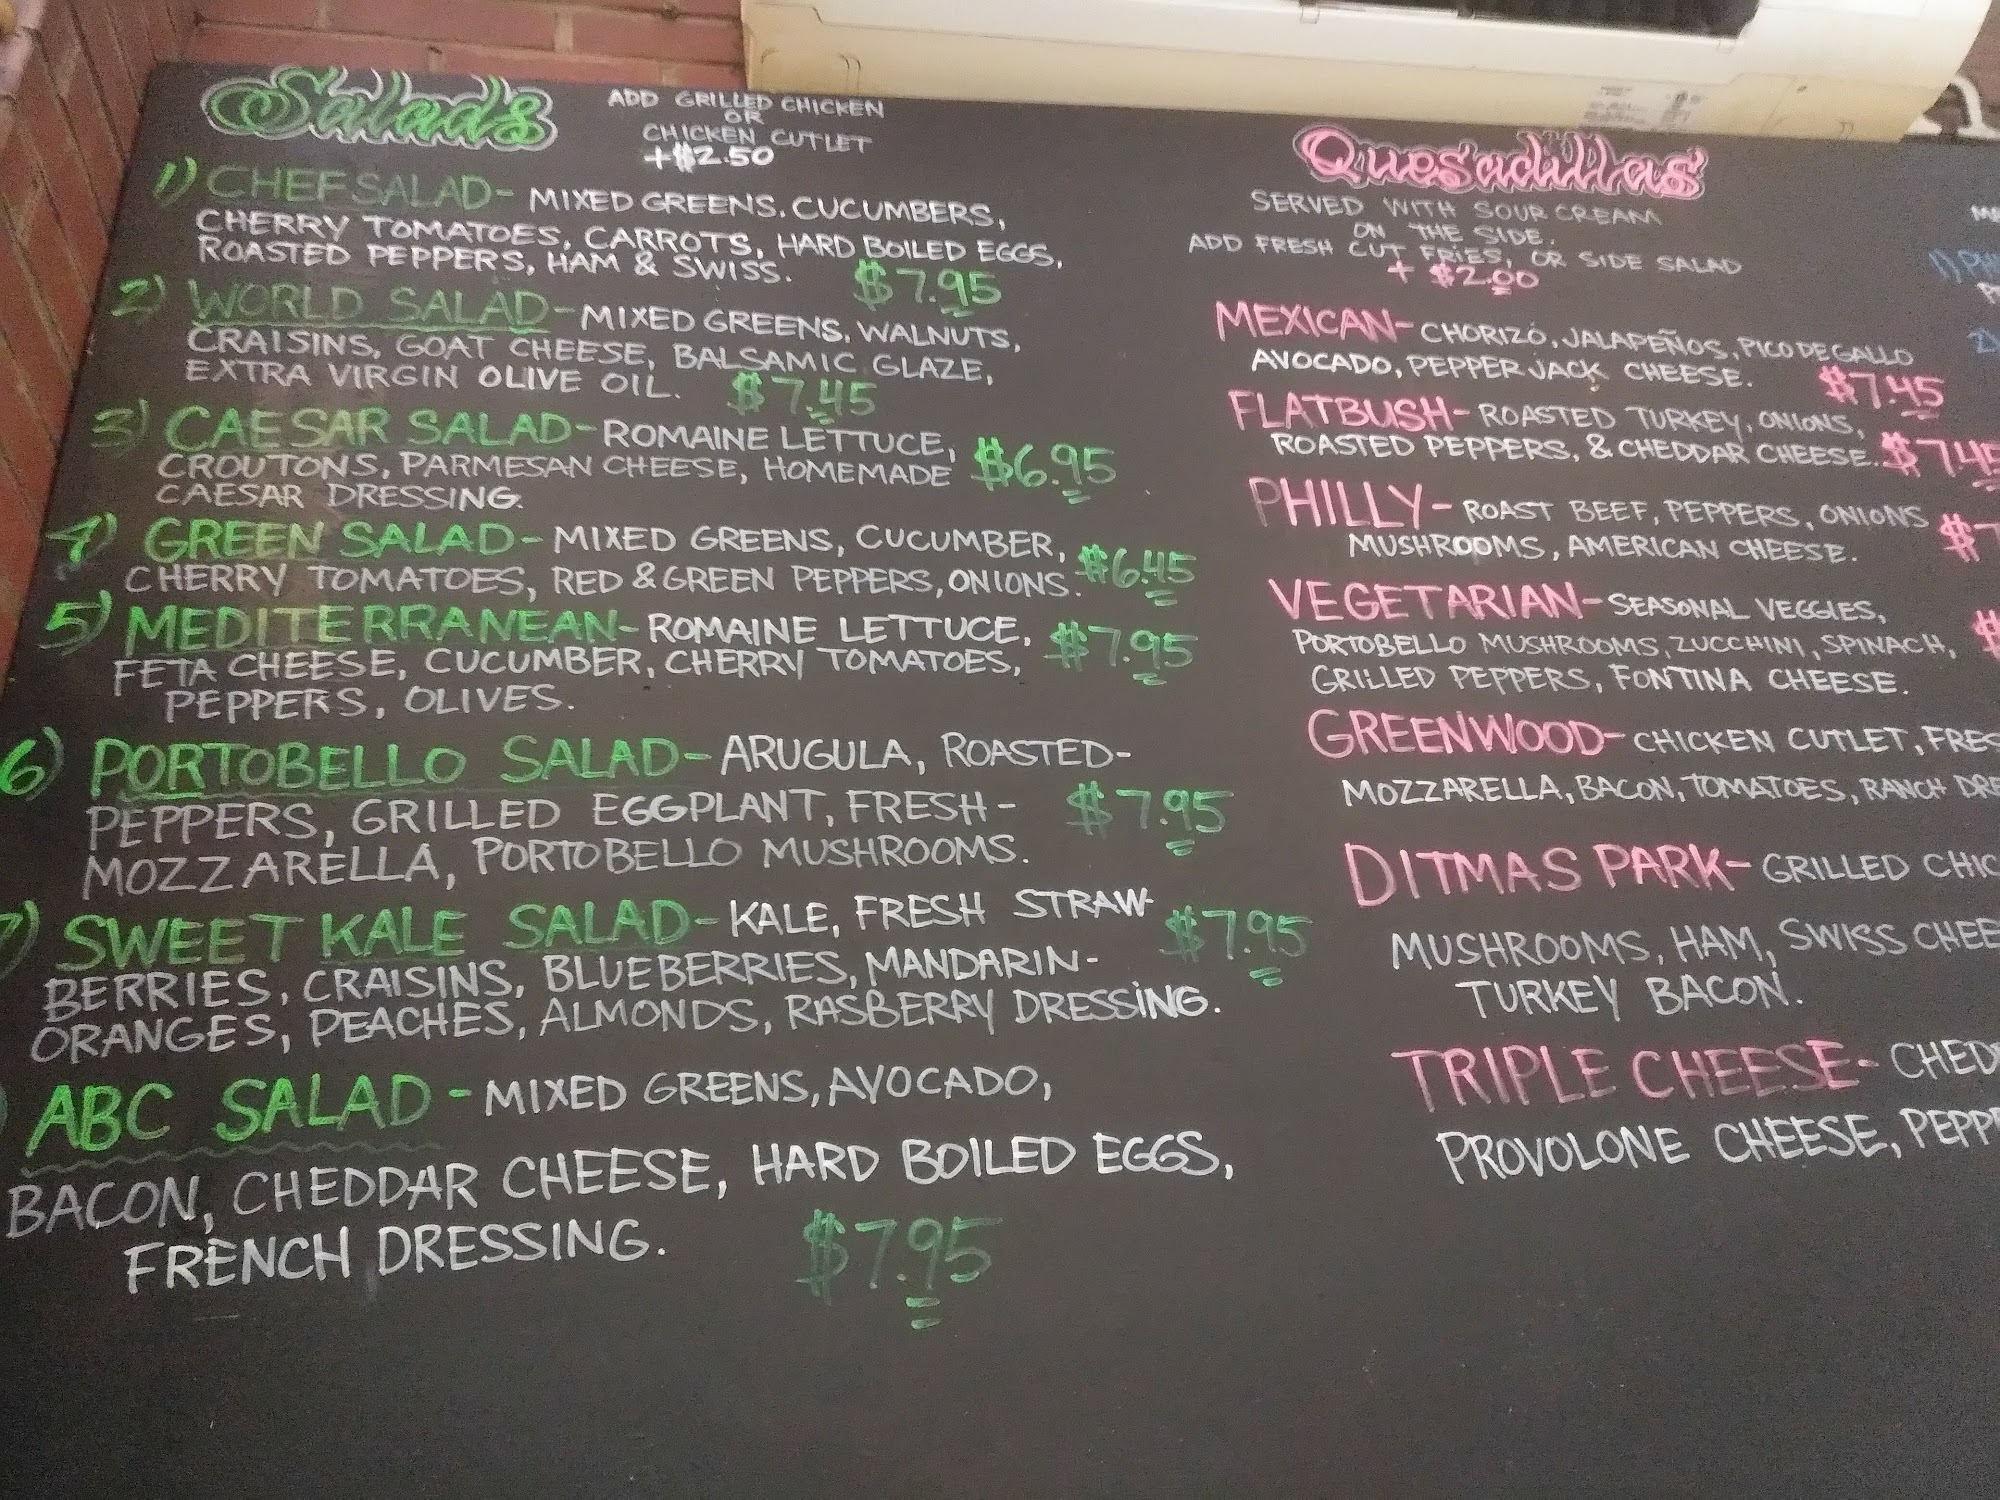 Salads
ADD GRILLED CHICKEN
OR
CHICKEN CUTLET
+$2.50
1) CHEF SALAD- MIXED GREENS, CUCUMBERS,
CHERRY TOMATOES, CARROTS, HARD BOILED EGGS,
ROASTED PEPPERS, HAM & SWISS. $7.95
2) WORLD SALAD- MIXED GREENS, WALNUTS,
CRAISINS, GOAT CHEESE, BALSAMIC GLAZE,
EXTRA VIRGIN OLIVE OIL. $7.45
3) CAESAR SALAD- ROMAINE LETTUCE,
CROUTONS, PARMESAN CHEESE, HOMEMADE $6.95
CAESAR DRESSING.
4) GREEN SALAD- MIXED GREENS, CUCUMBER,
CHERRY TOMATOES, RED & GREEN PEPPERS, ONIONS. $6.45
5) MEDITERRANEAN- ROMAINE LETTUCE,
FETA CHEESE, CUCUMBER, CHERRY TOMATOES, $7.95
PEPPERS, OLIVES.
6) PORTOBELLO SALAD- ARUGULA, ROASTED-
PEPPERS, GRILLED EGGPLANT, FRESH- $7.95
MOZZARELLA, PORTOBELLO MUSHROOMS.
7) SWEET KALE SALAD- KALE, FRESH STRAW- $7.95
BERRIES, CRAISINS, BLUEBERRIES, MANDARIN-
ORANGES, PEACHES, ALMONDS, RASBERRY DRESSING.
ABC SALAD- MIXED GREENS, AVOCADO,
BACON, CHEDDAR CHEESE, HARD BOILED EGGS,
FRENCH DRESSING. $7.95
Quesadillas
SERVED WITH SOUR CREAM
ON THE SIDE.
ADD FRESH CUT FRIES, OR SIDE SALAD
+ $2.00
MEXICAN- CHORIZO, JALAPEÑOS, PICO DE GALLO
AVOCADO, PEPPER JACK CHEESE. $7.45
FLATBUSH- ROASTED TURKEY, ONIONS,
ROASTED PEPPERS, & CHEDDAR CHEESE. $7.45
PHILLY- ROAST BEEF, PEPPERS, ONIONS $7
MUSHROOMS, AMERICAN CHEESE.
VEGETARIAN- SEASONAL VEGGIES,
PORTOBELLO MUSHROOMS, ZUCCHINI, SPINACH, $
GRILLED PEPPERS, FONTINA CHEESE.
GREENWOOD- CHICKEN CUTLET, FRES
MOZZARELLA, BACON, TOMATOES, RANCH DRE
DITMAS PARK- GRILLED CHIC
MUSHROOMS, HAM, SWISS CHEE
TURKEY BACON.
TRIPLE CHEESE- CHED
PROVOLONE CHEESE, PEPP